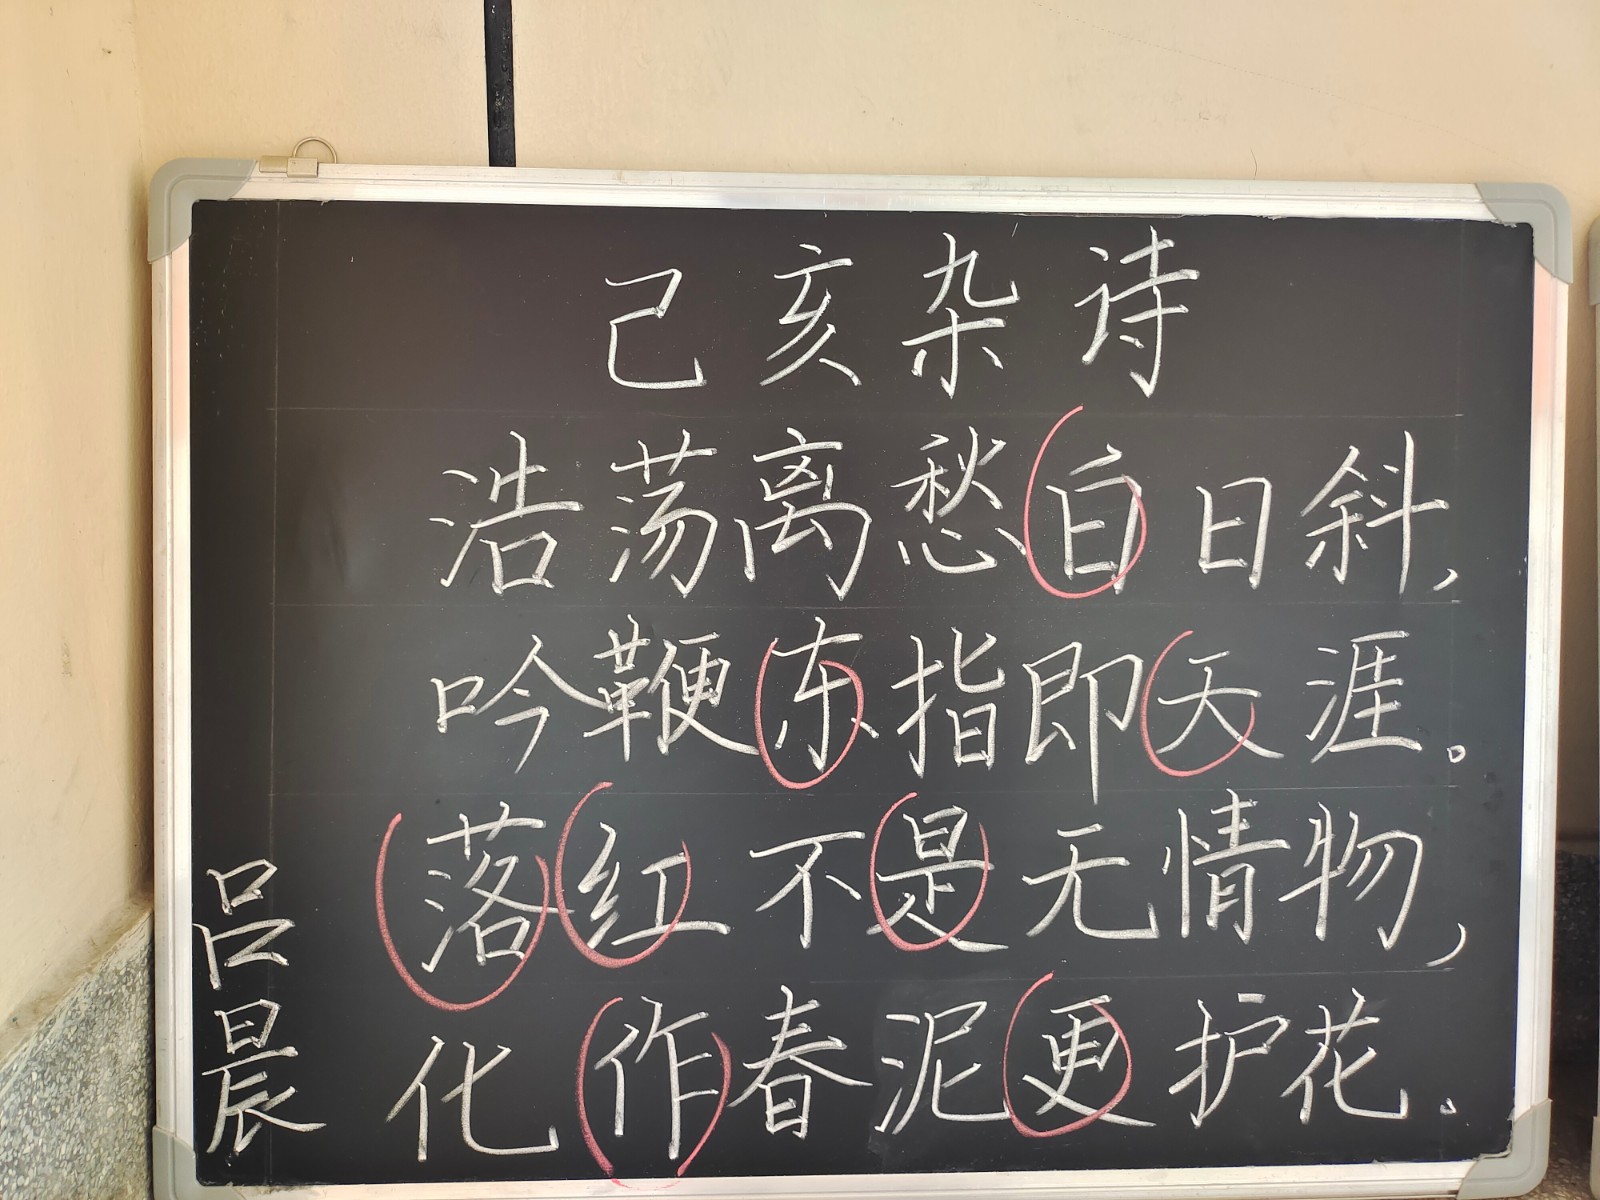 己亥杂诗
浩荡离愁白日斜，
吟鞭东指即天涯。
落红不是无情物，
化作春泥更护花。
吕晨